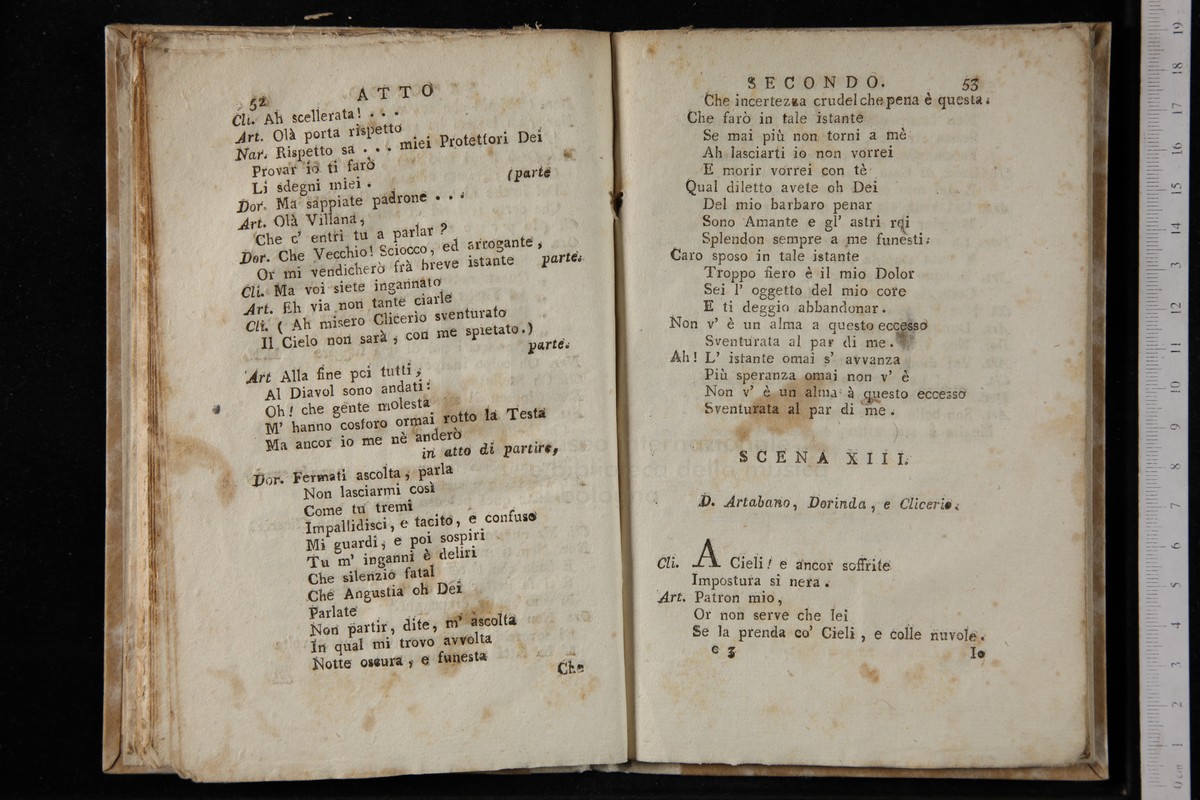 52
ATTO
Cli. Ah scellerata! . . .
Art. Olà porta rispetto
Nar. Rispetto sa . . . miei Protettori Dei
Provar io ti farò
Li sdegni miei . (parte
Dor. Ma sappiate padrone . . .
Art. Olà Villana,
Che c' entri tu a parlar ?
Dor. Che Vecchio! Sciocco, ed arrogante,
Or mi vendicherò frà breve istante parte.
Cli. Ma voi siete ingannato
Art. Eh via non tante ciarle
Cli. ( Ah misero Clicerio sventurato
Il Cielo non sarà , con me spietato.)
parte.
Art Alla fine poi tutti,
Al Diavol sono andati:
Oh! che gente molesta
M' hanno cosforo ormai rotto la Testa
Ma ancor io me nè anderò
in atto di partire,
Dor. Fermati ascolta, parla
Non lasciarmi così
Come tu tremi
Impallidisci, e tacito, e confuso
Mi guardi, e poi sospiri
Tu m' inganni è deliri
Che silenzio fatal
Che Angustia oh Dei
Parlate
Non partir, dite, m' ascolta
In qual mi trovo avvolta
Notte oscura, e funesta
Che
SECONDO. 53
Che incertezza crudel che pena è questa.
Che farò in tale istante
Se mai più non torni a mè
Ah lasciarti io non vorrei
E morir vorrei con tè
Qual diletto avete oh Dei
Del mio barbaro penar
Sono Amante e gl' astri rei
Splendon sempre a me funesti.
Caro sposo in tale istante
Troppo fiero è il mio Dolor
Sei l' oggetto del mio core
E ti deggio abbandonar.
Non v' è un alma a questo eccesso
Sventurata al par di me.
Ah! L' istante omai s' avvanza
Più speranza omai non v' è
Non v' è un alma à questo eccesso
Sventurata al par di me.
SCENA XIII.
D. Artabano, Dorinda, e Clicerio.
Cli. A Cieli! e ancor soffrite
Impostura si nera.
Art. Patron mio,
Or non serve che lei
Se la prenda co' Cieli, e colle nuvole.
e 3 Io
museo internazionale
e biblioteca della musica
bologna